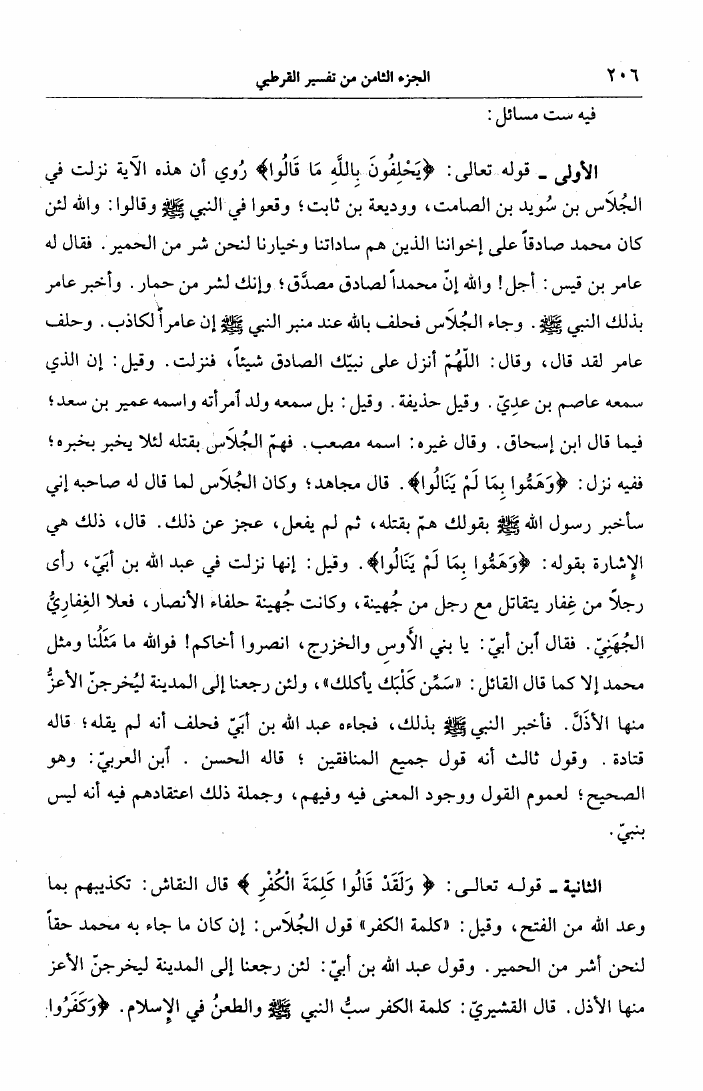 ٢٠٦ الجزء الثامن من تفسير القرطبي
فيه ست مسائل:
الأولى ـ قوله تعالى: ﴿يَحْلِفُونَ بِاللَّهِ مَا قَالُوا﴾ رُوي أن هذه الآية نزلت في
الجُلاَس بن سُويد بن الصامت، ووديعة بن ثابت؛ وقعوا في النبي ﷺ وقالوا: والله لئن
كان محمد صادقاً على إخواننا الذين هم ساداتنا وخيارنا لنحن شر من الحمير. فقال له
عامر بن قيس: أجل! والله إنّ محمداً لصادق مصدَّق؛ وإنك لشر من حمار. وأخبر عامر
بذلك النبي ﷺ. وجاء الجُلاَس فحلف بالله عند منبر النبي ﷺ إن عامراً لكاذب. وحلف
عامر لقد قال، وقال: اللّهُمّ أنزل على نبيّك الصادق شيئاً، فنزلت. وقيل: إن الذي
سمعه عاصم بن عدِيّ. وقيل حذيفة. وقيل: بل سمعه ولد ٱمرأته واسمه عمير بن سعد؛
فيما قال ابن إسحاق. وقال غيره: اسمه مصعب. فهمّ الجُلاَس بقتله لئلا يخبر بخبره؛
ففيه نزل: ﴿وَهَمُّوا بِمَا لَمْ يَنَالُوا﴾. قال مجاهد؛ وكان الجُلاَس لما قال له صاحبه إني
سأخبر رسول الله ﷺ بقولك همّ بقتله، ثم لم يفعل، عجز عن ذلك. قال، ذلك هي
الإشارة بقوله: ﴿وَهَمُّوا بِمَا لَمْ يَنَالُوا﴾. وقيل: إنها نزلت في عبد الله بن أبَيّ، رأى
رجلاً من غِفار يتقاتل مع رجل من جُهينة، وكانت جُهينة حلفاء الأنصار، فعلا الغِفاريُّ
الجُهَنِيّ. فقال ٱبن أبيّ: يا بني الأَوس والخزرج، انصروا أخاكم! فوالله ما مَثَلُنا ومثل
محمد إلا كما قال القائل: «سَمِّن كَلْبَك يأكلك»، ولئن رجعنا إلى المدينة ليُخرجنّ الأعزُّ
منها الأذَلَّ. فأخبر النبي ﷺ بذلك، فجاءه عبد الله بن أبَيّ فحلف أنه لم يقله؛ قاله
قتادة. وقول ثالث أنه قول جميع المنافقين ؛ قاله الحسن . ٱبن العربيّ: وهو
الصحيح؛ لعموم القول ووجود المعنى فيه وفيهم، وجملة ذلك اعتقادهم فيه أنه ليس
بنبيّ.
الثانية ـ قوله تعالى: ﴿ وَلَقَدْ قَالُوا كَلِمَةَ الْكُفْرِ ﴾ قال النقاش: تكذيبهم بما
وعد الله من الفتح، وقيل: «كلمة الكفر» قول الجُلاَس: إن كان ما جاء به محمد حقاً
لنحن أشر من الحمير. وقول عبد الله بن أبيّ: لئن رجعنا إلى المدينة ليخرجنّ الأعز
منها الأذل. قال القشيريّ: كلمة الكفر سبُّ النبي ﷺ والطعنُ في الإسلام. ﴿وَكَفَرُوا